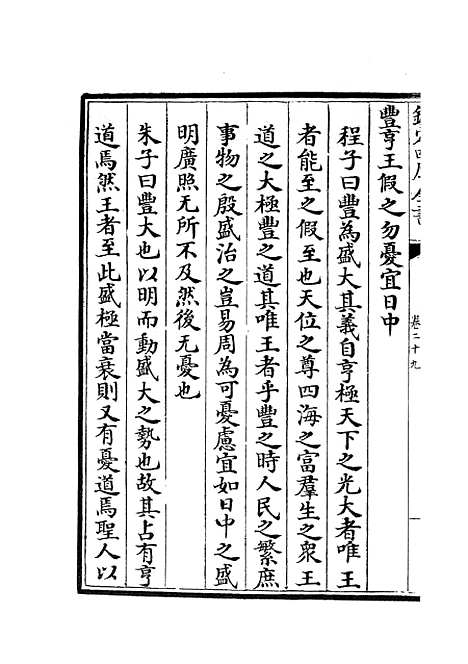 欽定四庫全書
卷二十九
豐亨王假之勿憂宜日中
程子曰豐為盛大其義自亨極天下之光大者唯王
者能至之假至也天位之尊四海之富羣生之衆王
道之大極豐之道其唯王者乎豐之時人民之繁庶
事物之殷盛治之豈易周為可憂慮宜如日中之盛
明廣照无所不及然後无憂也
朱子曰豐大也以明而動盛大之勢也故其占有亨
道焉然王者至此盛極當衰則又有憂道焉聖人以